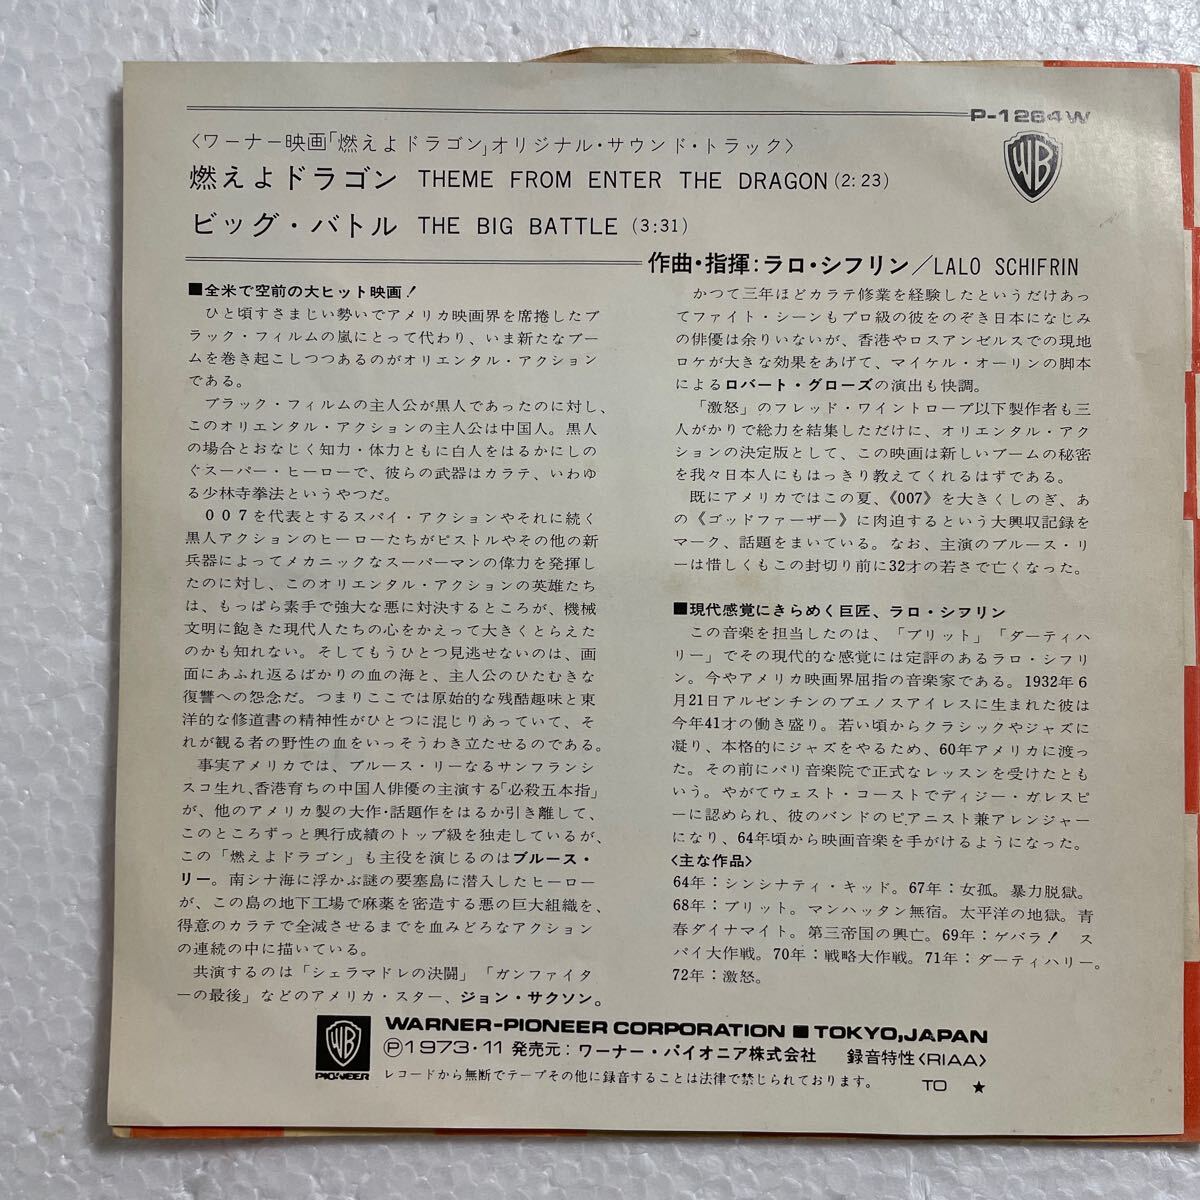 P-1264W
〈ワーナー映画「燃えよドラゴン」オリジナル・サウンド・トラック〉
WB
燃えよドラゴン THEME FROM ENTER THE DRAGON (2:23)
ビッグ・バトル THE BIG BATTLE (3:31)
作曲・指揮:ラロ・シフリン/LALO SCHIFRIN
■全米で空前の大ヒット映画!
ひと頃すさまじい勢いでアメリカ映画界を席捲したブ
ラック・フィルムの嵐にとって代わり、いま新たなブー
ムを巻き起こしつつあるのがオリエンタル・アクション
である。
ブラック・フィルムの主人公が黒人であったのに対し、
このオリエンタル・アクションの主人公は中国人。黒人
の場合とおなじく知力・体力ともに白人をはるかにしの
ぐスーパー・ヒーローで、彼らの武器はカラテ、いわゆ
る少林寺拳法というやつだ。
007を代表とするスパイ・アクションやそれに続く
黒人アクションのヒーローたちがピストルやその他の新
兵器によってメカニックなスーパーマンの偉力を発揮し
たのに対し、このオリエンタル・アクションの英雄たち
は、もっぱら素手で強大な悪に対決するところが、機械
文明に飽きた現代人たちの心をかえって大きくとらえた
のかも知れない。そしてもうひとつ見逃せないのは、画
面にあふれ返るばかりの血の海と、主人公のひたむきな
復讐への怨念だ。つまりここでは原始的な残酷趣味と東
洋的な修道書の精神性がひとつに混じりあっていて、そ
れが観る者の野性の血をいっそうわき立たせるのである。
事実アメリカでは、ブルース・リーなるサンフランシ
スコ生れ、香港育ちの中国人俳優の主演する「必殺五本指」
が、他のアメリカ製の大作・話題作をはるか引き離して、
このところずっと興行成績のトップ級を独走しているが、
この「燃えよドラゴン」も主役を演じるのはブルース・
リー。南シナ海に浮かぶ謎の要塞島に潜入したヒーロー
が、この島の地下工場で麻薬を密造する悪の巨大組織を、
得意のカラテで全滅させるまでを血みどろなアクション
の連続の中に描いている。
共演するのは「シェラマドレの決闘」「ガンファイタ
ーの最後」などのアメリカ・スター、ジョン・サクソン。
かつて三年ほどカラテ修業を経験したというだけあっ
てファイト・シーンもプロ級の彼をのぞき日本になじみ
の俳優は余りいないが、香港やロスアンゼルスでの現地
ロケが大きな効果をあげて、マイケル・オーリンの脚本
によるロバート・グローズの演出も快調。
「激怒」のフレッド・ワイントローブ以下製作者も三
人がかりで総力を結集しただけに、オリエンタル・アク
ションの決定版として、この映画は新しいブームの秘密
を我々日本人にもはっきり教えてくれるはずである。
既にアメリカではこの夏、《007》を大きくしのぎ、あ
の《ゴッドファーザー》に肉迫するという大興収記録を
マーク、話題をまいている。なお、主演のブルース・リ
ーは惜しくもこの封切り前に32才の若さで亡くなった。
■現代感覚にきらめく巨匠、ラロ・シフリン
この音楽を担当したのは、「ブリット」「ダーティハ
リー」でその現代的な感覚には定評のあるラロ・シフリ
ン。今やアメリカ映画界屈指の音楽家である。1932年6
月21日アルゼンチンのブエノスアイレスに生まれた彼は
今年41才の働き盛り。若い頃からクラシックやジャズに
凝り、本格的にジャズをやるため、60年アメリカに渡っ
た。その前にパリ音楽院で正式なレッスンを受けたとも
いう。やがてウェスト・コーストでディジー・ガレスピ
ーに認められ、彼のバンドのピアニスト兼アレンジャー
になり、64年頃から映画音楽を手がけるようになった。
〈主な作品〉
64年:シンシナティ・キッド。67年:女狐。暴力脱獄。
68年:ブリット。マンハッタン無宿。太平洋の地獄。青
春ダイナマイト。第三帝国の興亡。69年:ゲバラ! ス
パイ大作戦。70年:戦略大作戦。71年:ダーティハリー。
72年:激怒。
WB PIONEER
WARNER-PIONEER CORPORATION ■ TOKYO, JAPAN
Ⓟ1973・11 発売元:ワーナー・パイオニア株式会社 録音特性〈RIAA〉
レコードから無断でテープその他に録音することは法律で禁じられております。 TO ★